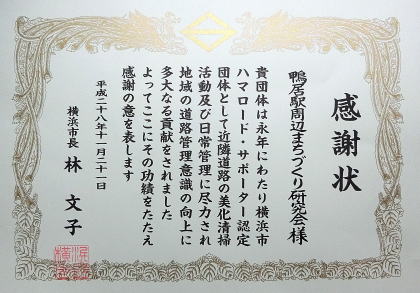 感謝状
鴨居駅周辺まちづくり研究会様
貴団体は永年にわたり横浜市
ハマロード・サポーター認定
団体として近隣道路の美化清掃
活動及び日常管理に尽力され
地域の道路管理意識の向上に
多大なる貢献をされました
よってここにその功績をたたえ
感謝の意を表します
平成二十八年十一月二十一日
横浜市長 林文子